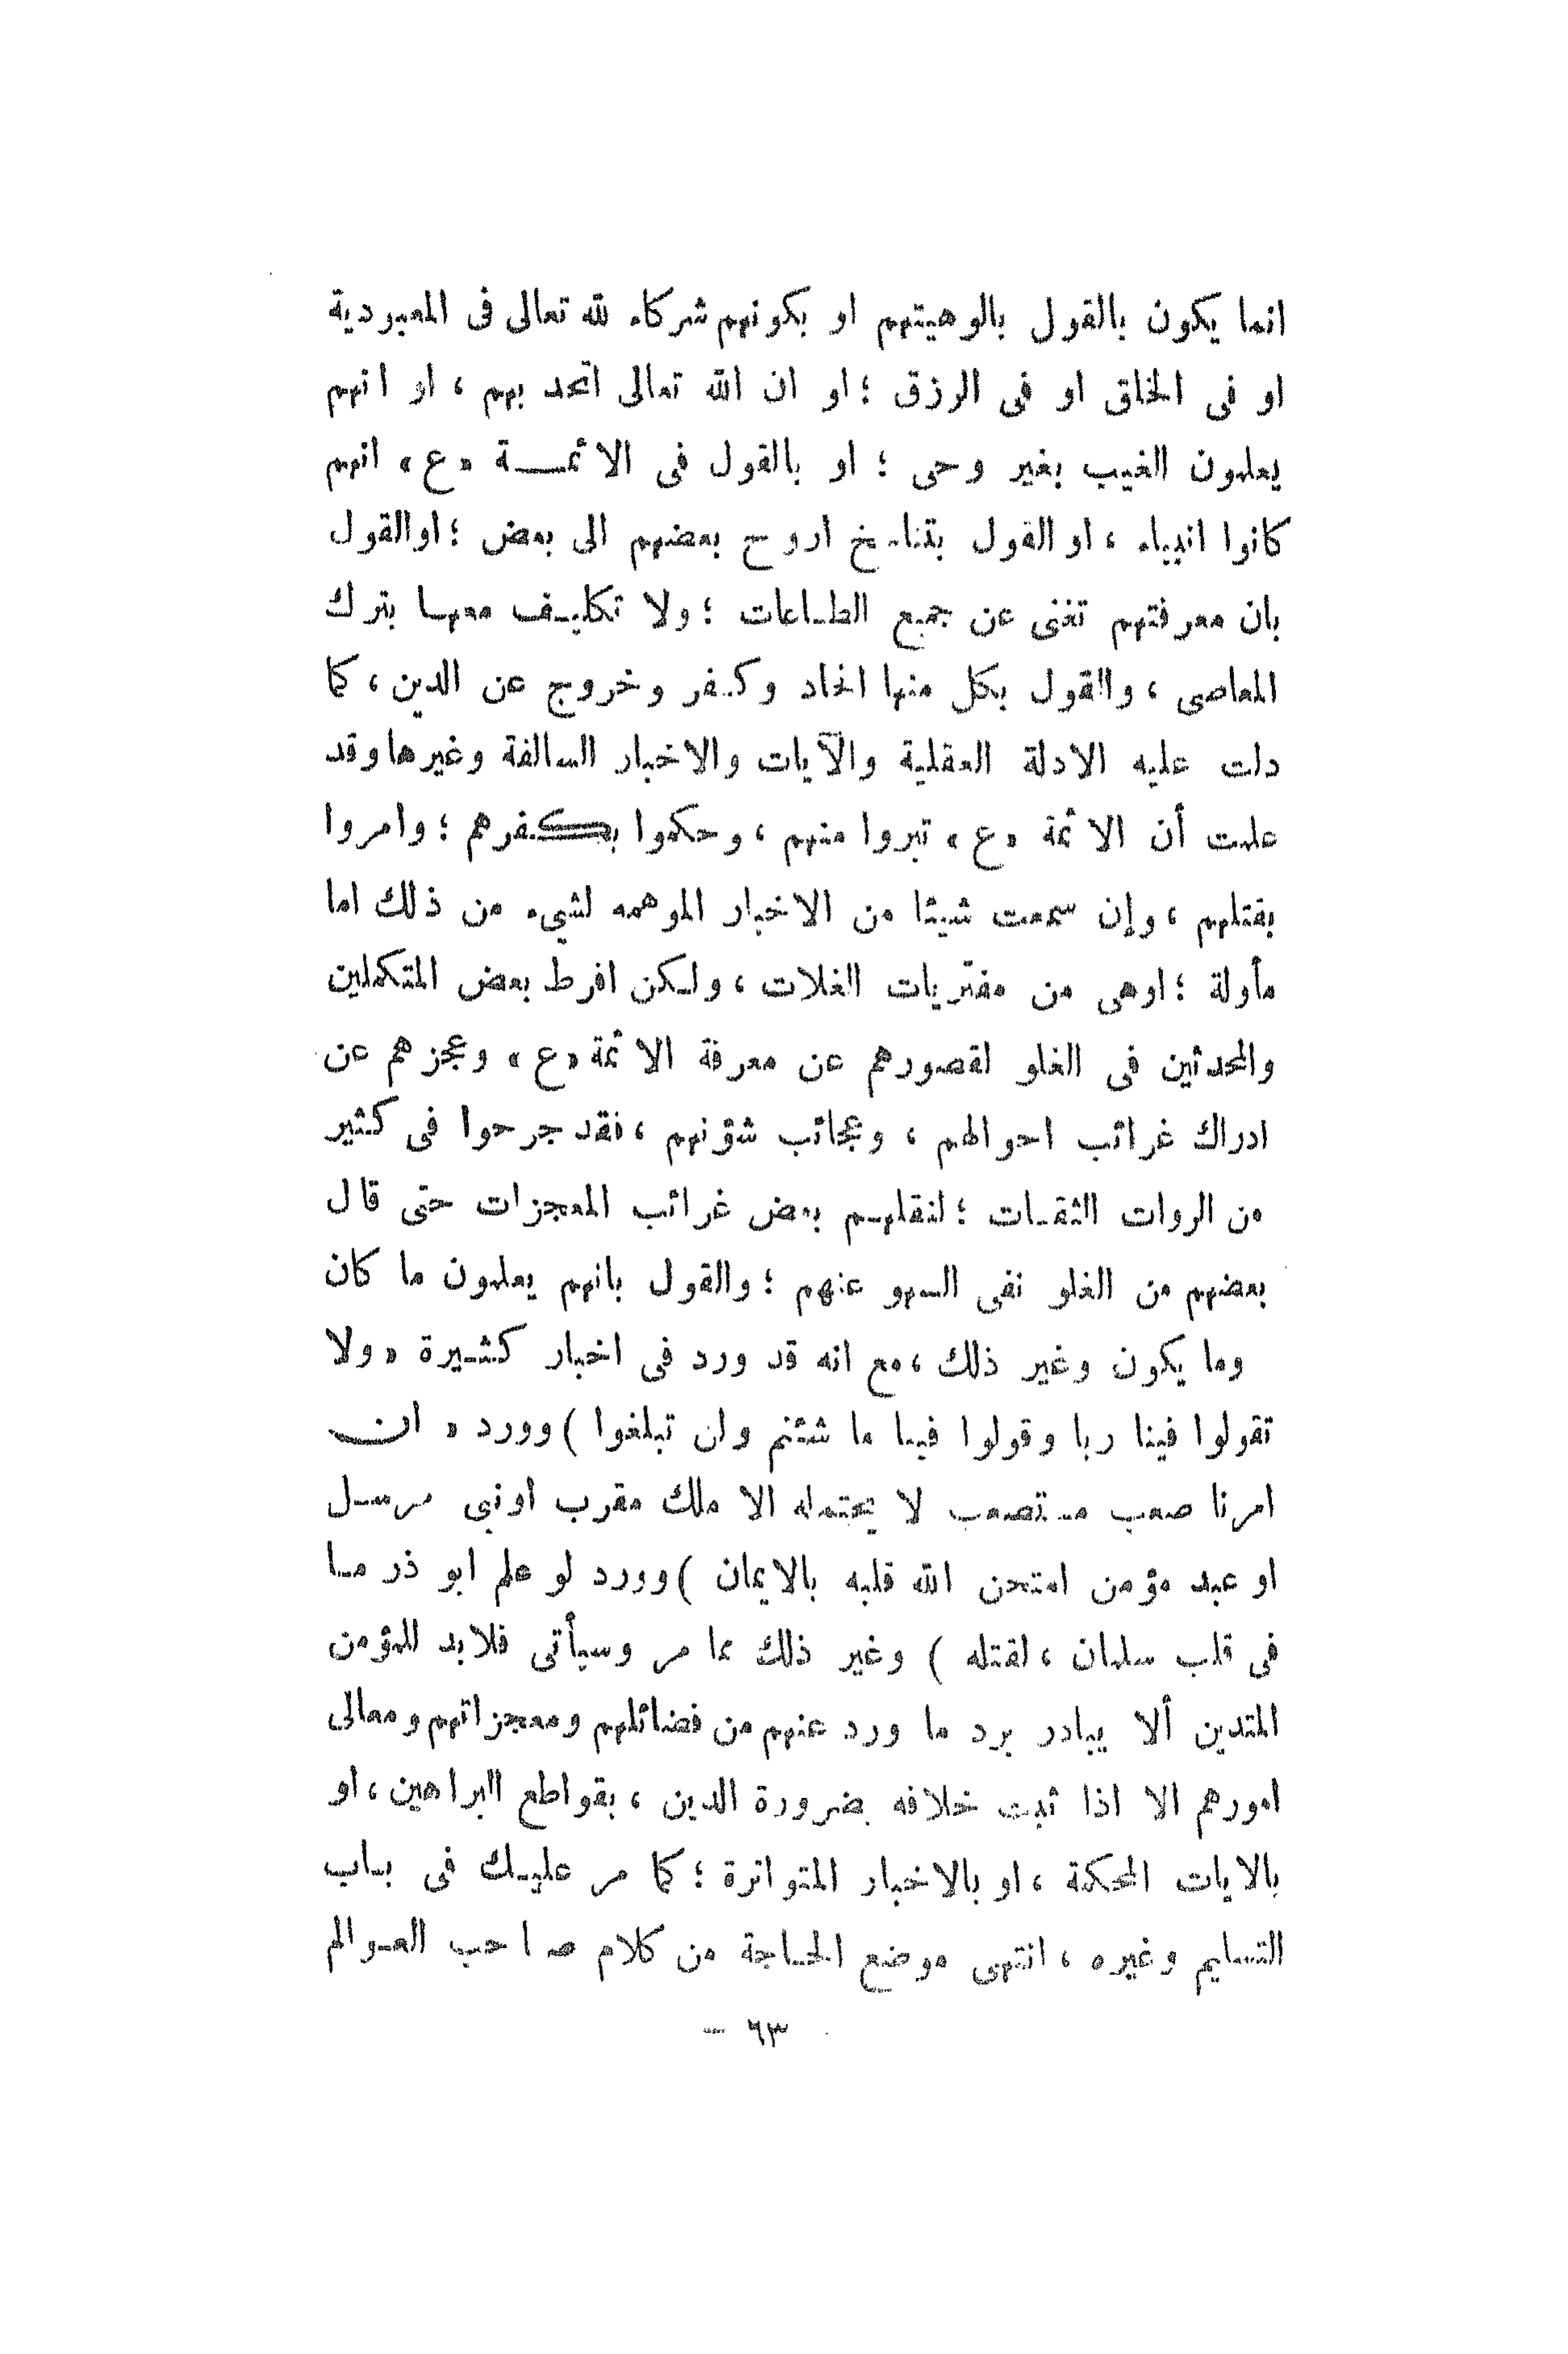 انما يكون بالقول بالوهيتهم او بكونهم شركاء لله تعالى فى المعبودية
او فى الخلق او فى الرزق ؛ او ان الله تعالى اتحد بهم ، او انهم
يعلمون الغيب بغير وحى ؛ او بالقول فى الائمــة «ع» انهم
كانوا انبياء ، او القول بتناسخ اروح بعضهم الى بعض ؛ اوالقول
بان معرفتهم تغنى عن جميع الطـاعات ؛ ولا تكليـف معهـا بترك
المعاصى ، والقول بكل منها الحاد وكـفر وخروج عن الدين ، كما
دلت عليه الادلة العقلية والآيات والاخبار السالفة وغيرها وقد
علمت أن الائمة «ع» تبروا منهم ، وحكموا بكفرهم ؛ وامروا
بقتلهم ، وإن سمعت شيئا من الاخبار الموهمه لشيء من ذلك اما
مأولة ؛ اوهى من مفتريات الغلات ، ولكن افرط بعض المتكملين
والمحدثين فى الغلو لقصورهم عن معرفة الائمة «ع» وعجزهم عن
ادراك غرائب احوالهم ، وعجائب شؤنهم ، فقد جرحوا فى كثير
من الروات الثقـات ؛ لنقلهـم بعض غرائب المعجزات حتى قال
بعضهم من الغلو نفى السهو عنهم ؛ والقول بانهم يعلمون ما كان
وما يكون وغير ذلك ، مع انه قد ورد فى اخبار كثـيرة « ولا
تقولوا فينا ربا وقولوا فينا ما شئتم وان تبلغوا ) وورد « ان
امرنا صعب مستصعب لا يحتمله الا ملك مقرب او نبى مرسـل
او عبد مؤمن امتحن الله قلبه بالايمان ) وورد لو علم ابو ذر مـا
فى قلب سلمان ، لقتله ) وغير ذلك مما مر وسيأتى فلابد للمؤمن
المتدين ألا يبادر برد ما ورد عنهم من فضائلهم ومعجزاتهم ومعالى
امورهم الا اذا ثبت خلافه بضرورة الدين ، بقواطع البراهين ، او
بالايات المحكمة ، او بالاخبار المتواترة ؛ كما مر عليـك فى بـاب
التسليم وغيره ، انتهى موضع الحـاجة من كلام صاحب العـوالم
٦٣ –